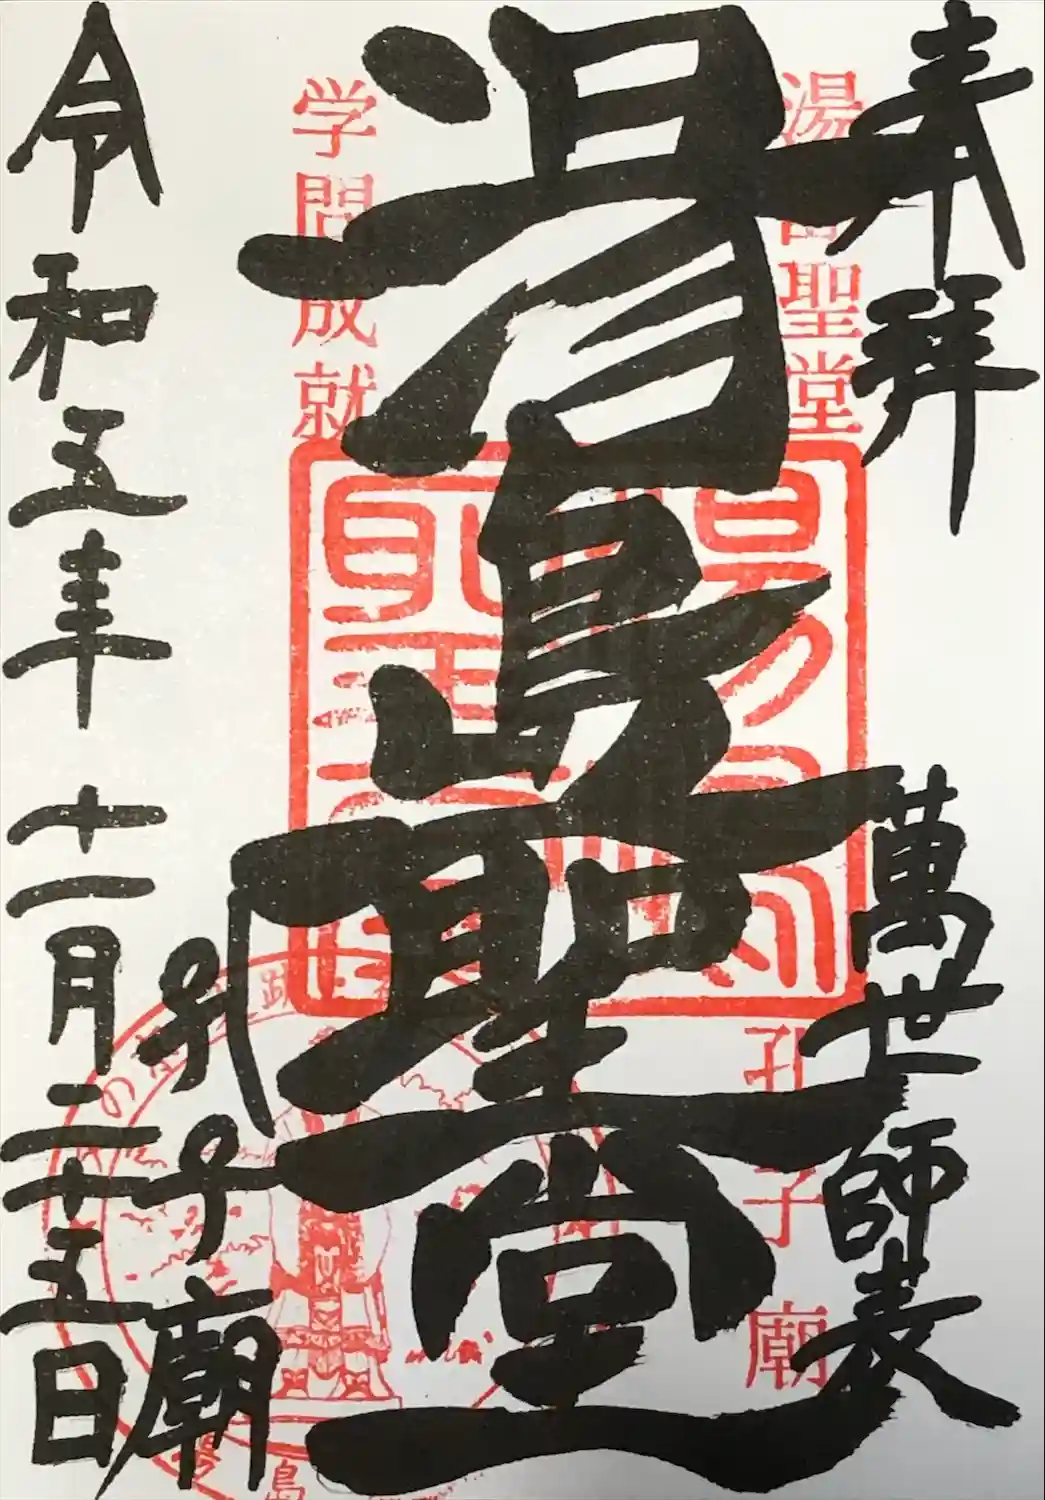 奉拝
萬世師表
湯島聖堂
孔子廟
湯島聖堂
学問成就
湯島聖堂
孔子廟
令和五年十一月二十五日